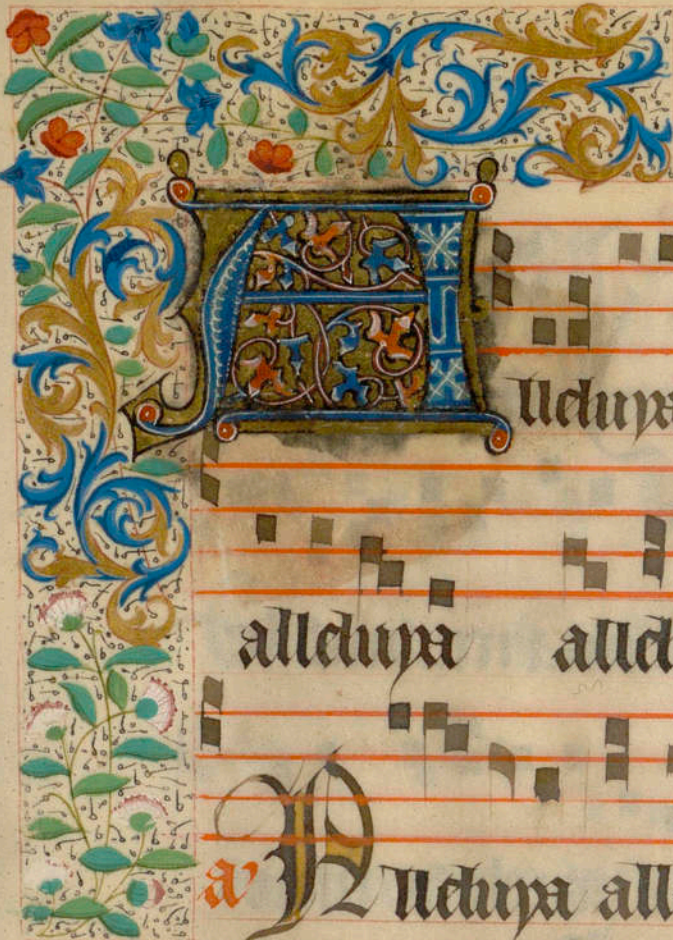 Alleluya
alleluya allel
a' Alleluya all